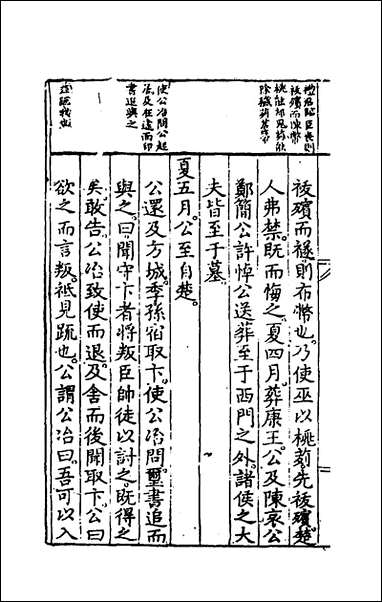 禮君臨臣喪則
祓殯而陳幣
桃能却鬼茢能
除穢
使公冶問公起
及在途而印
書追與之
踈我也
祓殯而禭則布幣也。乃使巫以桃茢先祓殯。楚
人弗禁。既而悔之。夏四月。葬康王。公及陳哀公
鄭簡公許悼公送葬至于西門之外。諸侯之大
夫皆至于墓。
夏五月。公至自楚。
公還及方城。季孫宿取卞。使公冶問。璽書追而
與之。曰聞守卞者將叛。臣帥徒以討之。既得之
矣。敢告。公冶致使而退。及舍而後聞取卞。公曰
欲之而言叛。祗見疏也。公謂公冶曰。吾可以入